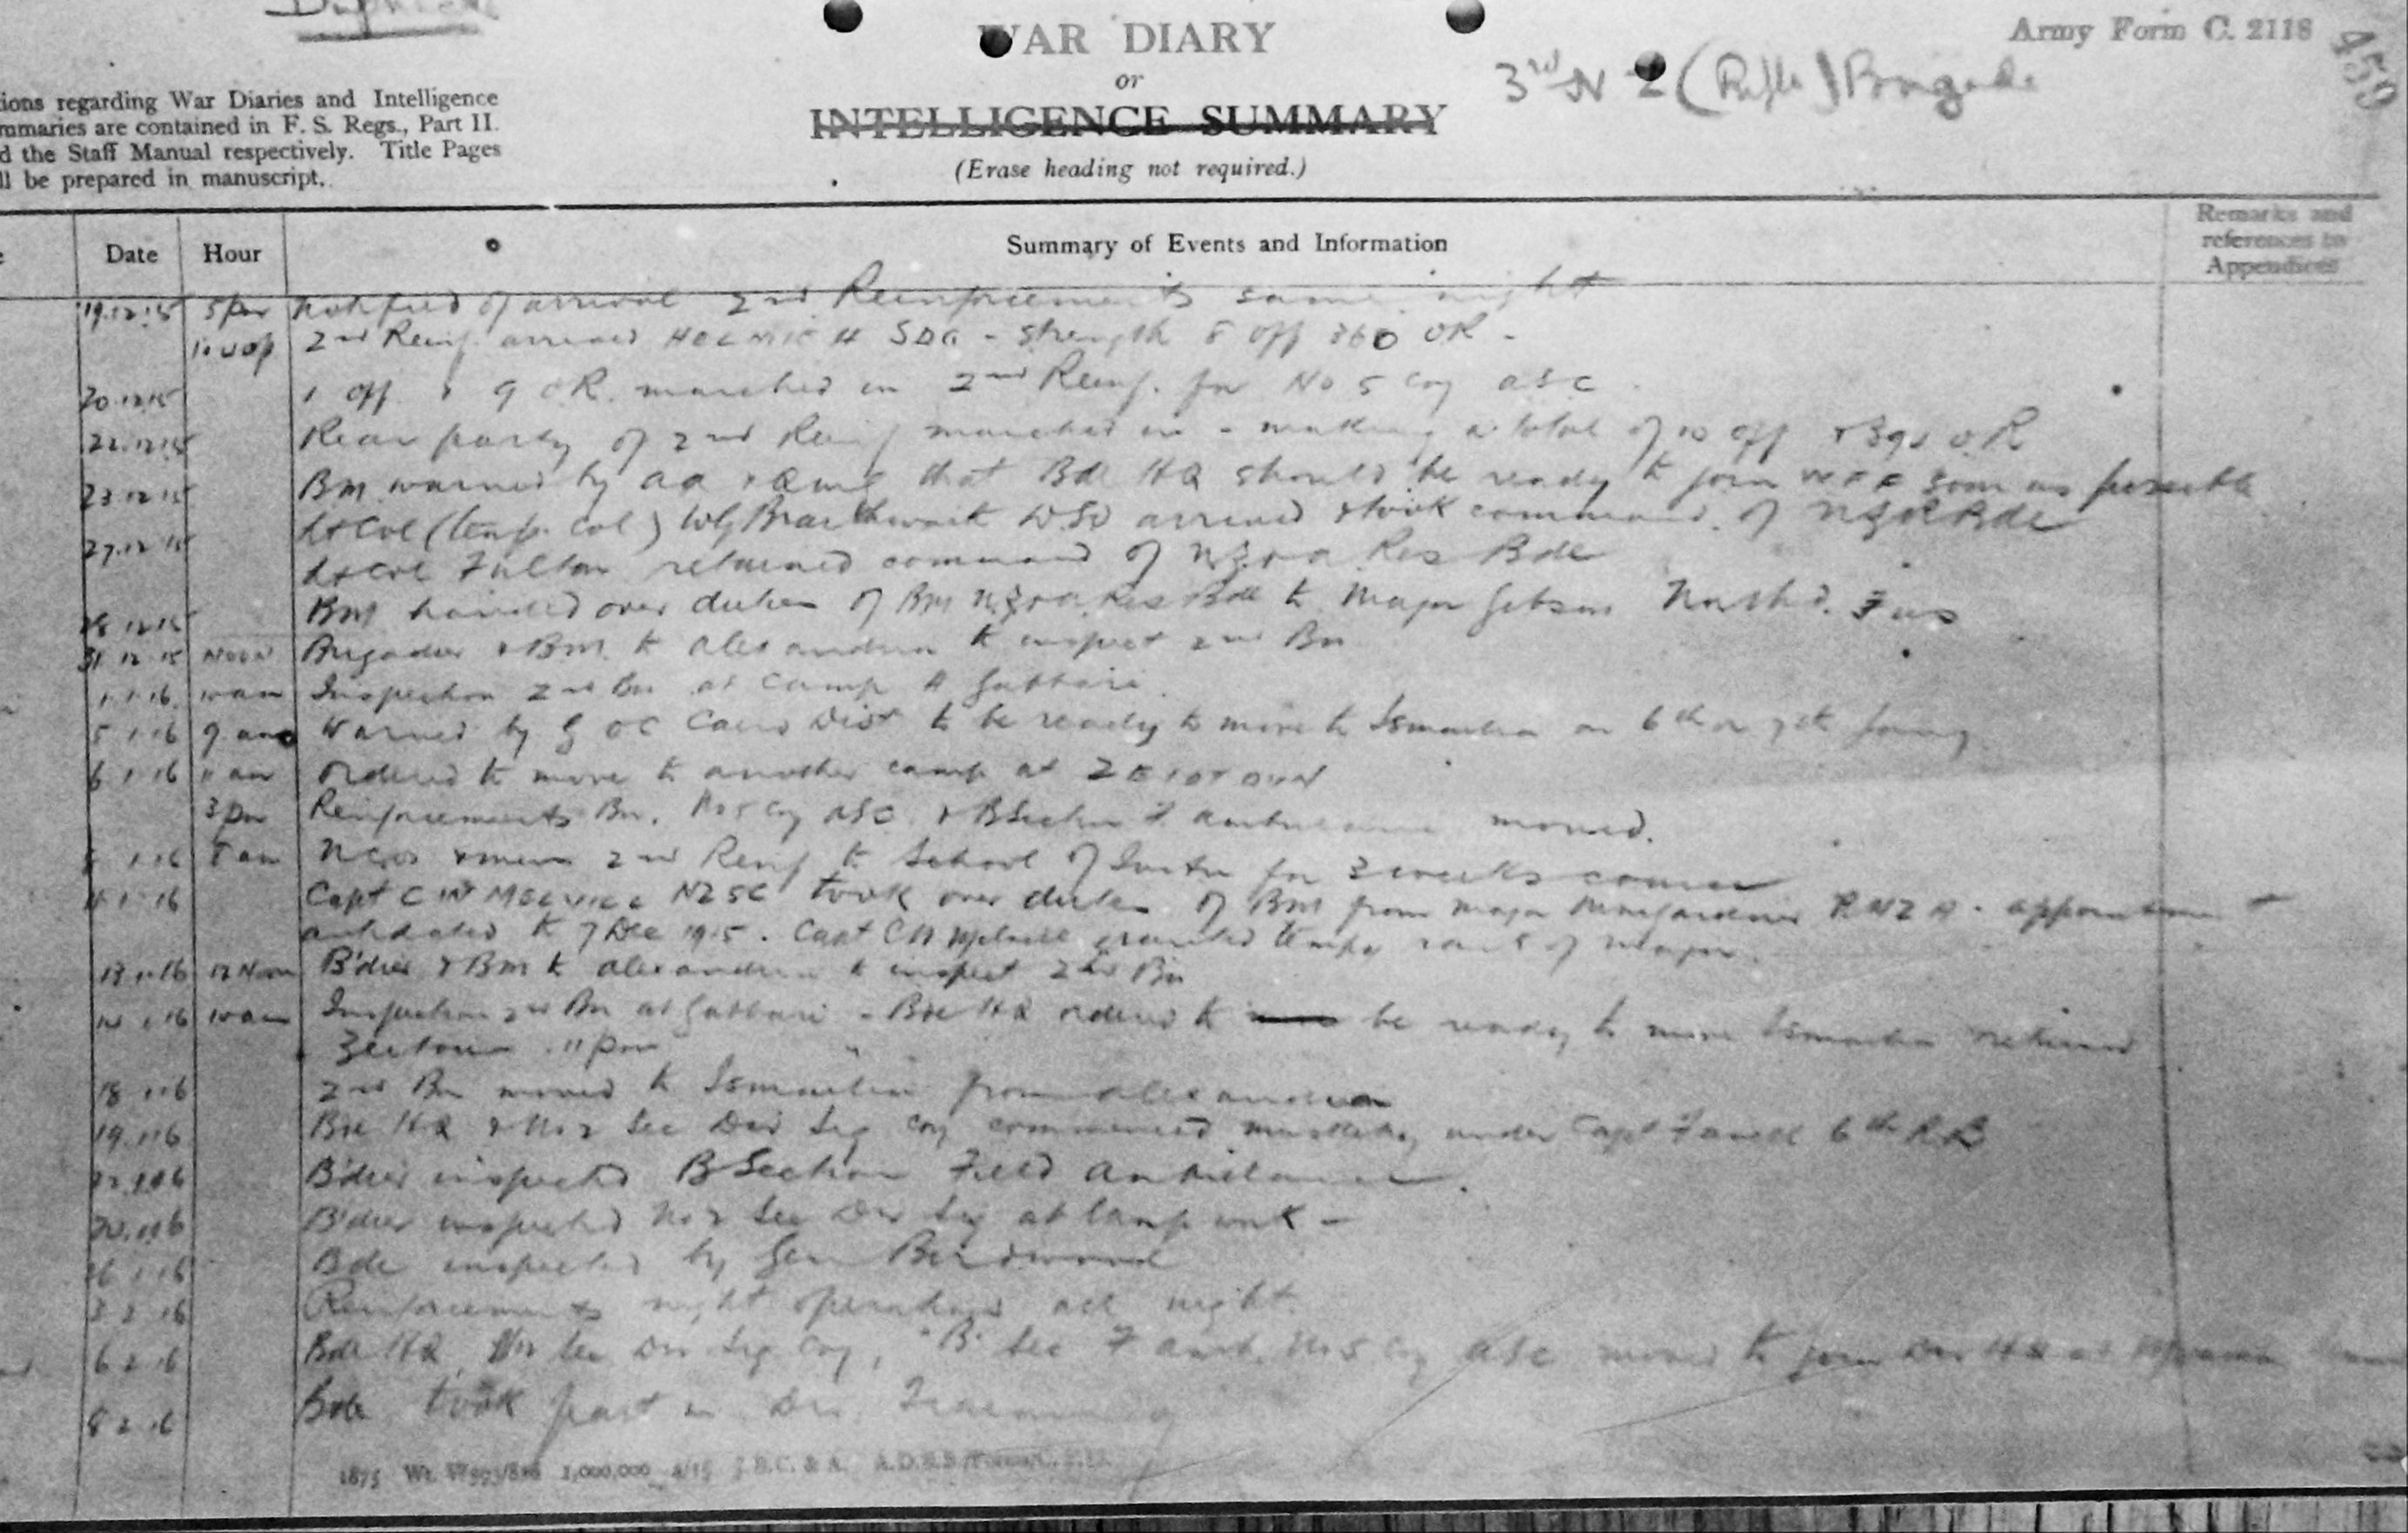 Duplicate
WAR DIARY
or
INTELLIGENCE SUMMARY
(Erase heading not required.)
Army Form C. 2118
459
3rd N Z (Rifle) Brigade
tions regarding War Diaries and Intelligence
mmaries are contained in F. S. Regs., Part II.
d the Staff Manual respectively. Title Pages
ll be prepared in manuscript.
Date Hour Summary of Events and Information Remarks and references to Appendices
19.12.15 5pm Notified of arrival 2nd Reinforcements same night
2nd Reinf. arrived - strength 8 off 360 OR -
20.12.15 1 off & 9 OR. marched in 2nd Reinf. for No 5 Coy ASC
22.12.15 Rear party of 2nd Reinf marched in - making a total of 10 off OR
23.12.15 BM warned by AA & QMG that Bde HQ should be ready to join soon as possible
Lt Col (temp. Col) WG Braithwaite DSO arrived & took command of NZRBde
27.12.15 Lt Col Fulton command of Res Bde
BM handed over duties of BM Res Bde to Major Gibson North'd. Fus
28.12.15
31.12.15 Noon Brigadier & BM. to Alexandria to inspect 2nd Bn
1.1.16 10 am Inspection 2nd Bn at Camp A Gabbari.
5 1.16 9 am Warned by G OC Cairo Dist to be ready to move to Ismailia on 6th or 7th
6 1.16 11 am Ordered to move to another camp at ZEITOUN
3pm Reinforcements Bn. No 5 Coy ASC. & B Section F. Ambulance moved.
8 1.16 8 am NCOs & men 2nd Reinf to School of Instn for 3 weeks course
1.16 Capt C W MELVILL NZSC took over duties of BM from Major RNZA - appointment
antedated to 7 Dec 1915. Capt C W Melvill granted tempy rank of Major.
13 1.16 12 Noon B'dier & BM to Alexandria to inspect 2nd Bn
14 1.16 10 am Inspection 2nd Bn at Gabbari - Bde HQ ordered to be ready to move Ismailia returned
Zeitoun 11 pm
18 1.16 2nd Bn moved to Ismailia from Alexandria
19.1.16 Bde HQ & No 2 Sec Div Sig Coy commenced musketry under Capt 6th RB
22.1.16 B'dier inspected B Section Field Ambulance.
B'dier inspected No 2 Sec Div Sig at lamp work -
26 1.16 Bde inspected by Gen Birdwood
3 2 16 Reinforcements night operations all night.
6 2 16 Bde HQ, No 2 Sec Div Sig Coy, "B" Sec F Amb. No 5 Coy ASC moved to join Div HQ at
8 2 16 Bde took part in Div. Training
1875 Wt. W593/826 1,000,000 4/15 J.B.C. & A. A.D.S.S./Forms/C. 2118.